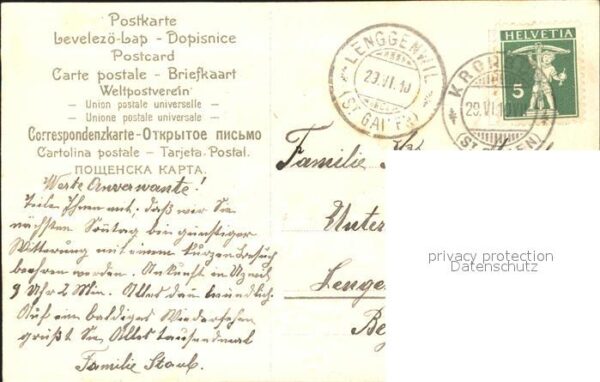 Postkarte
Levelezö-Lap - Dopisnice
Postcard
Carte postale - Briefkaart
Weltpostverein
- Union postale universelle -
- Unione postale universale -
Correspondenzkarte - Открытое письмо
Cartolina postale - Tarjeta Postal.
ПОЩЕНСКА КАРТА.
LENGGENWIL
29.VI.10
(ST. GALLEN)
HELVETIA
5
29.VI.10
(ST. GALLEN)
Werte Anverwante!
Teile Ihnen mit, daß wir Sie
nächsten Sontag bei günstiger
Witterung mit einem kurzen Besuch
beehren werden. Ankunft in Uzwil
9 Uhr 2 Min. Alles den mündlich.
Auf ein baldiges Wiedersehen
grüßt Sie Alles tausendmal
Familie Staub.
Familie
Unter
Lenge
privacy protection
Datenschutz